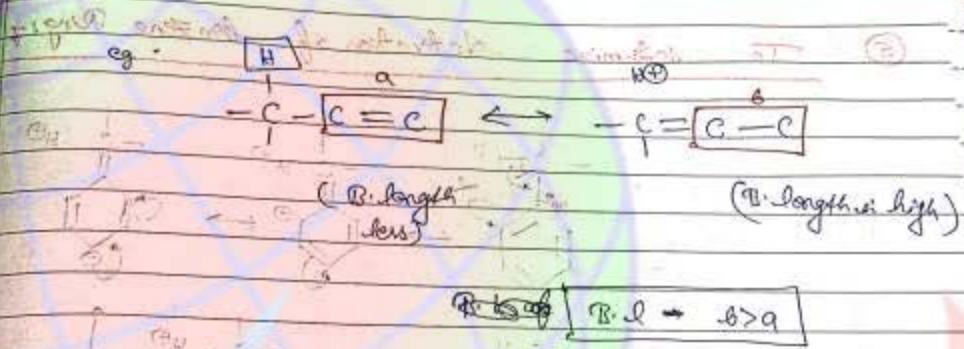 eg.
H
a
H⊕
b
- C - C = C ⟷ - C = C - C
(B. length less)
(B. length is high)
B. l → b>a